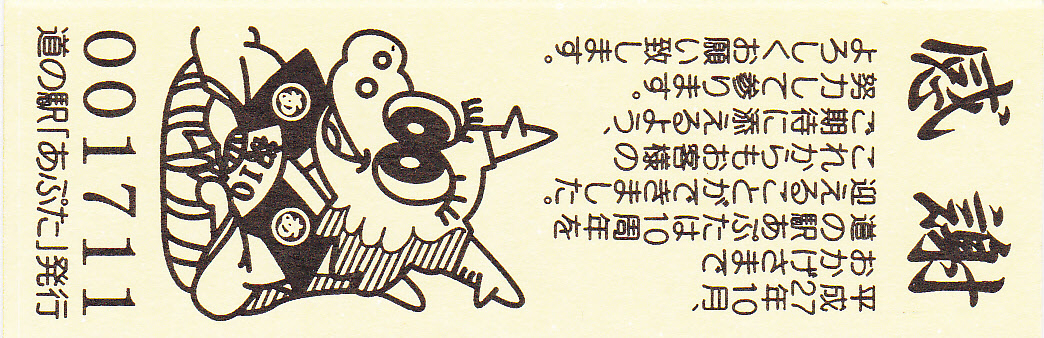 感謝
平成
27年10月、
おかげさまで
道の駅あぷたは10周年を
迎えることができました。
これからもお客様の
ご期待に添えるよう、
努力して参ります。
よろしくお願い致します。
あ
あ
祝10
001711
道の駅「あぷた」発行